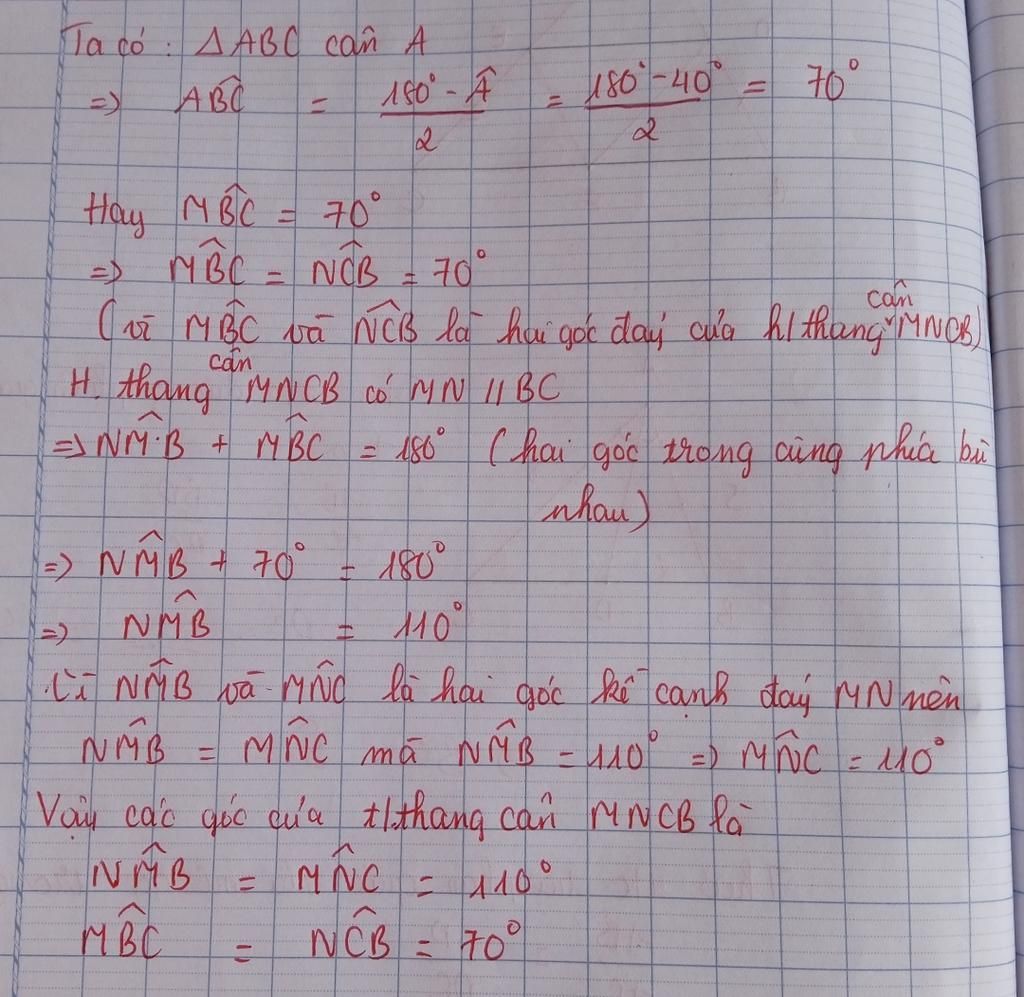 Ta có: ΔABC cân A
=> AB̂C = (180° - Â)/2 = (180° - 40°)/2 = 70°
Hay MB̂C = 70°
=> MB̂C = NĈB = 70°
(vì MB̂C và NĈB là hai góc đáy của h/thang cân MNCB)
H. thang cân MNCB có MN // BC
=> NM̂B + MB̂C = 180° (hai góc trong cùng phía bù
nhau)
=> NM̂B + 70° = 180°
=> NM̂B = 110°
Vì NM̂B và MN̂C là hai góc kề cạnh đáy MN nên
NM̂B = MN̂C mà NM̂B = 110° => MN̂C = 110°
Vậy các góc của t/thang cân MNCB là
NM̂B = MN̂C = 110°
MB̂C = NĈB = 70°